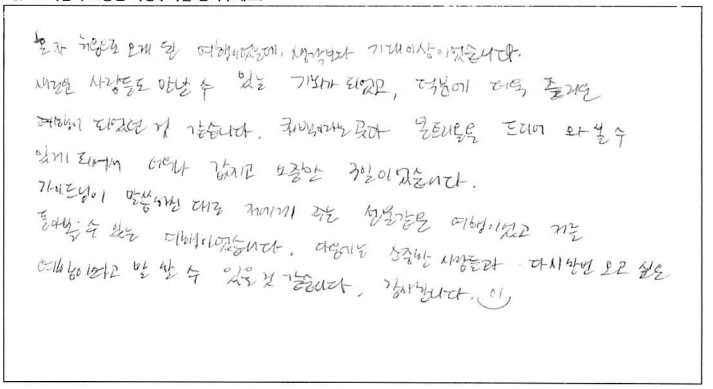 혼자 처음으로 오게 된 여행이었는데, 생각보다 기대이상이었습니다.
새로운 사람들도 만날 수 있는 기회가 되었고, 덕분에 더욱 즐거운
여행이 되었던 것 같습니다. 퀘벡이라는 곳과 몬트리올을 드디어 와 볼 수
있게 되어서 너무나 값지고 소중한 3일이었습니다.
가이드님이 말씀하신 대로 저에게 주는 선물같은 여행이었고 저를
돌아볼 수 있는 여행이었습니다. 다음에는 소중한 사람들과 다시한번 오고 싶은
여행이라고 말 할 수 있을 것 같습니다. 감사합니다.